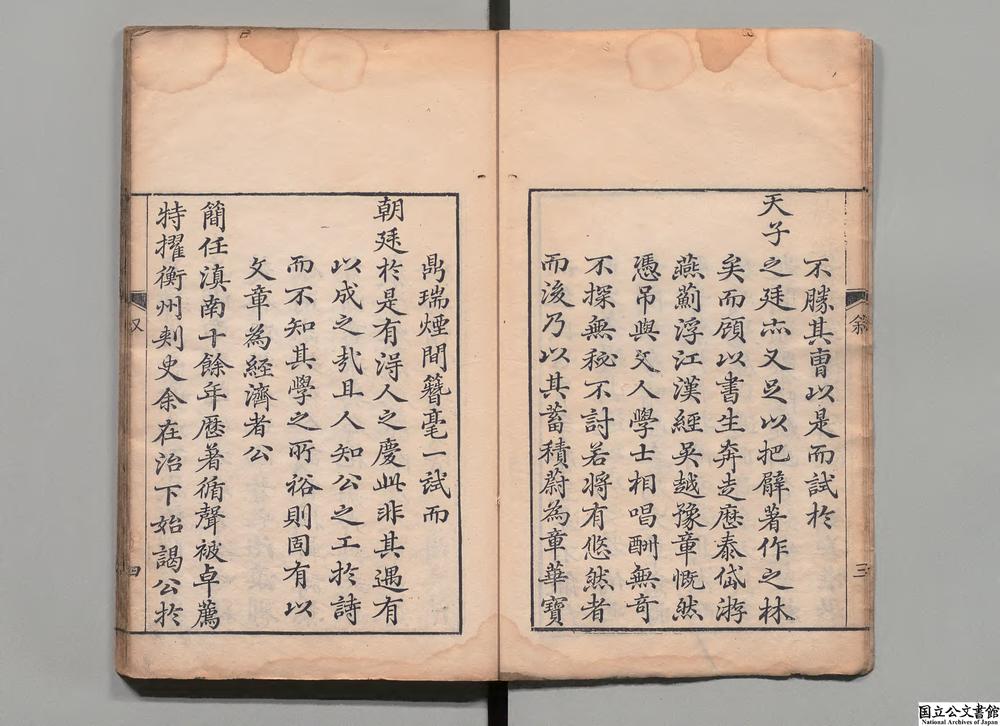 不勝其曹以是而試於
天子之廷亦又足以把臂著作之林
矣而顧以書生奔走歷泰岱游
燕薊浮江漢經吳越豫章慨然
憑吊與文人學士相唱酬無奇
不探無秘不討若將有悠然者
而後乃以其蓄積蔚為章華寶
敘
三
鼎瑞煙間簪毫一試而
朝廷於是有淂人之慶此非其遇有
以成之㢤且人知公之工於詩
而不知其學之所裕則固有以
文章為經濟者公
簡任滇南十餘年歷著循聲被卓薦
特擢衡州刺史余在治下始謁公於
四
国立公文書館
National Archives of Japan